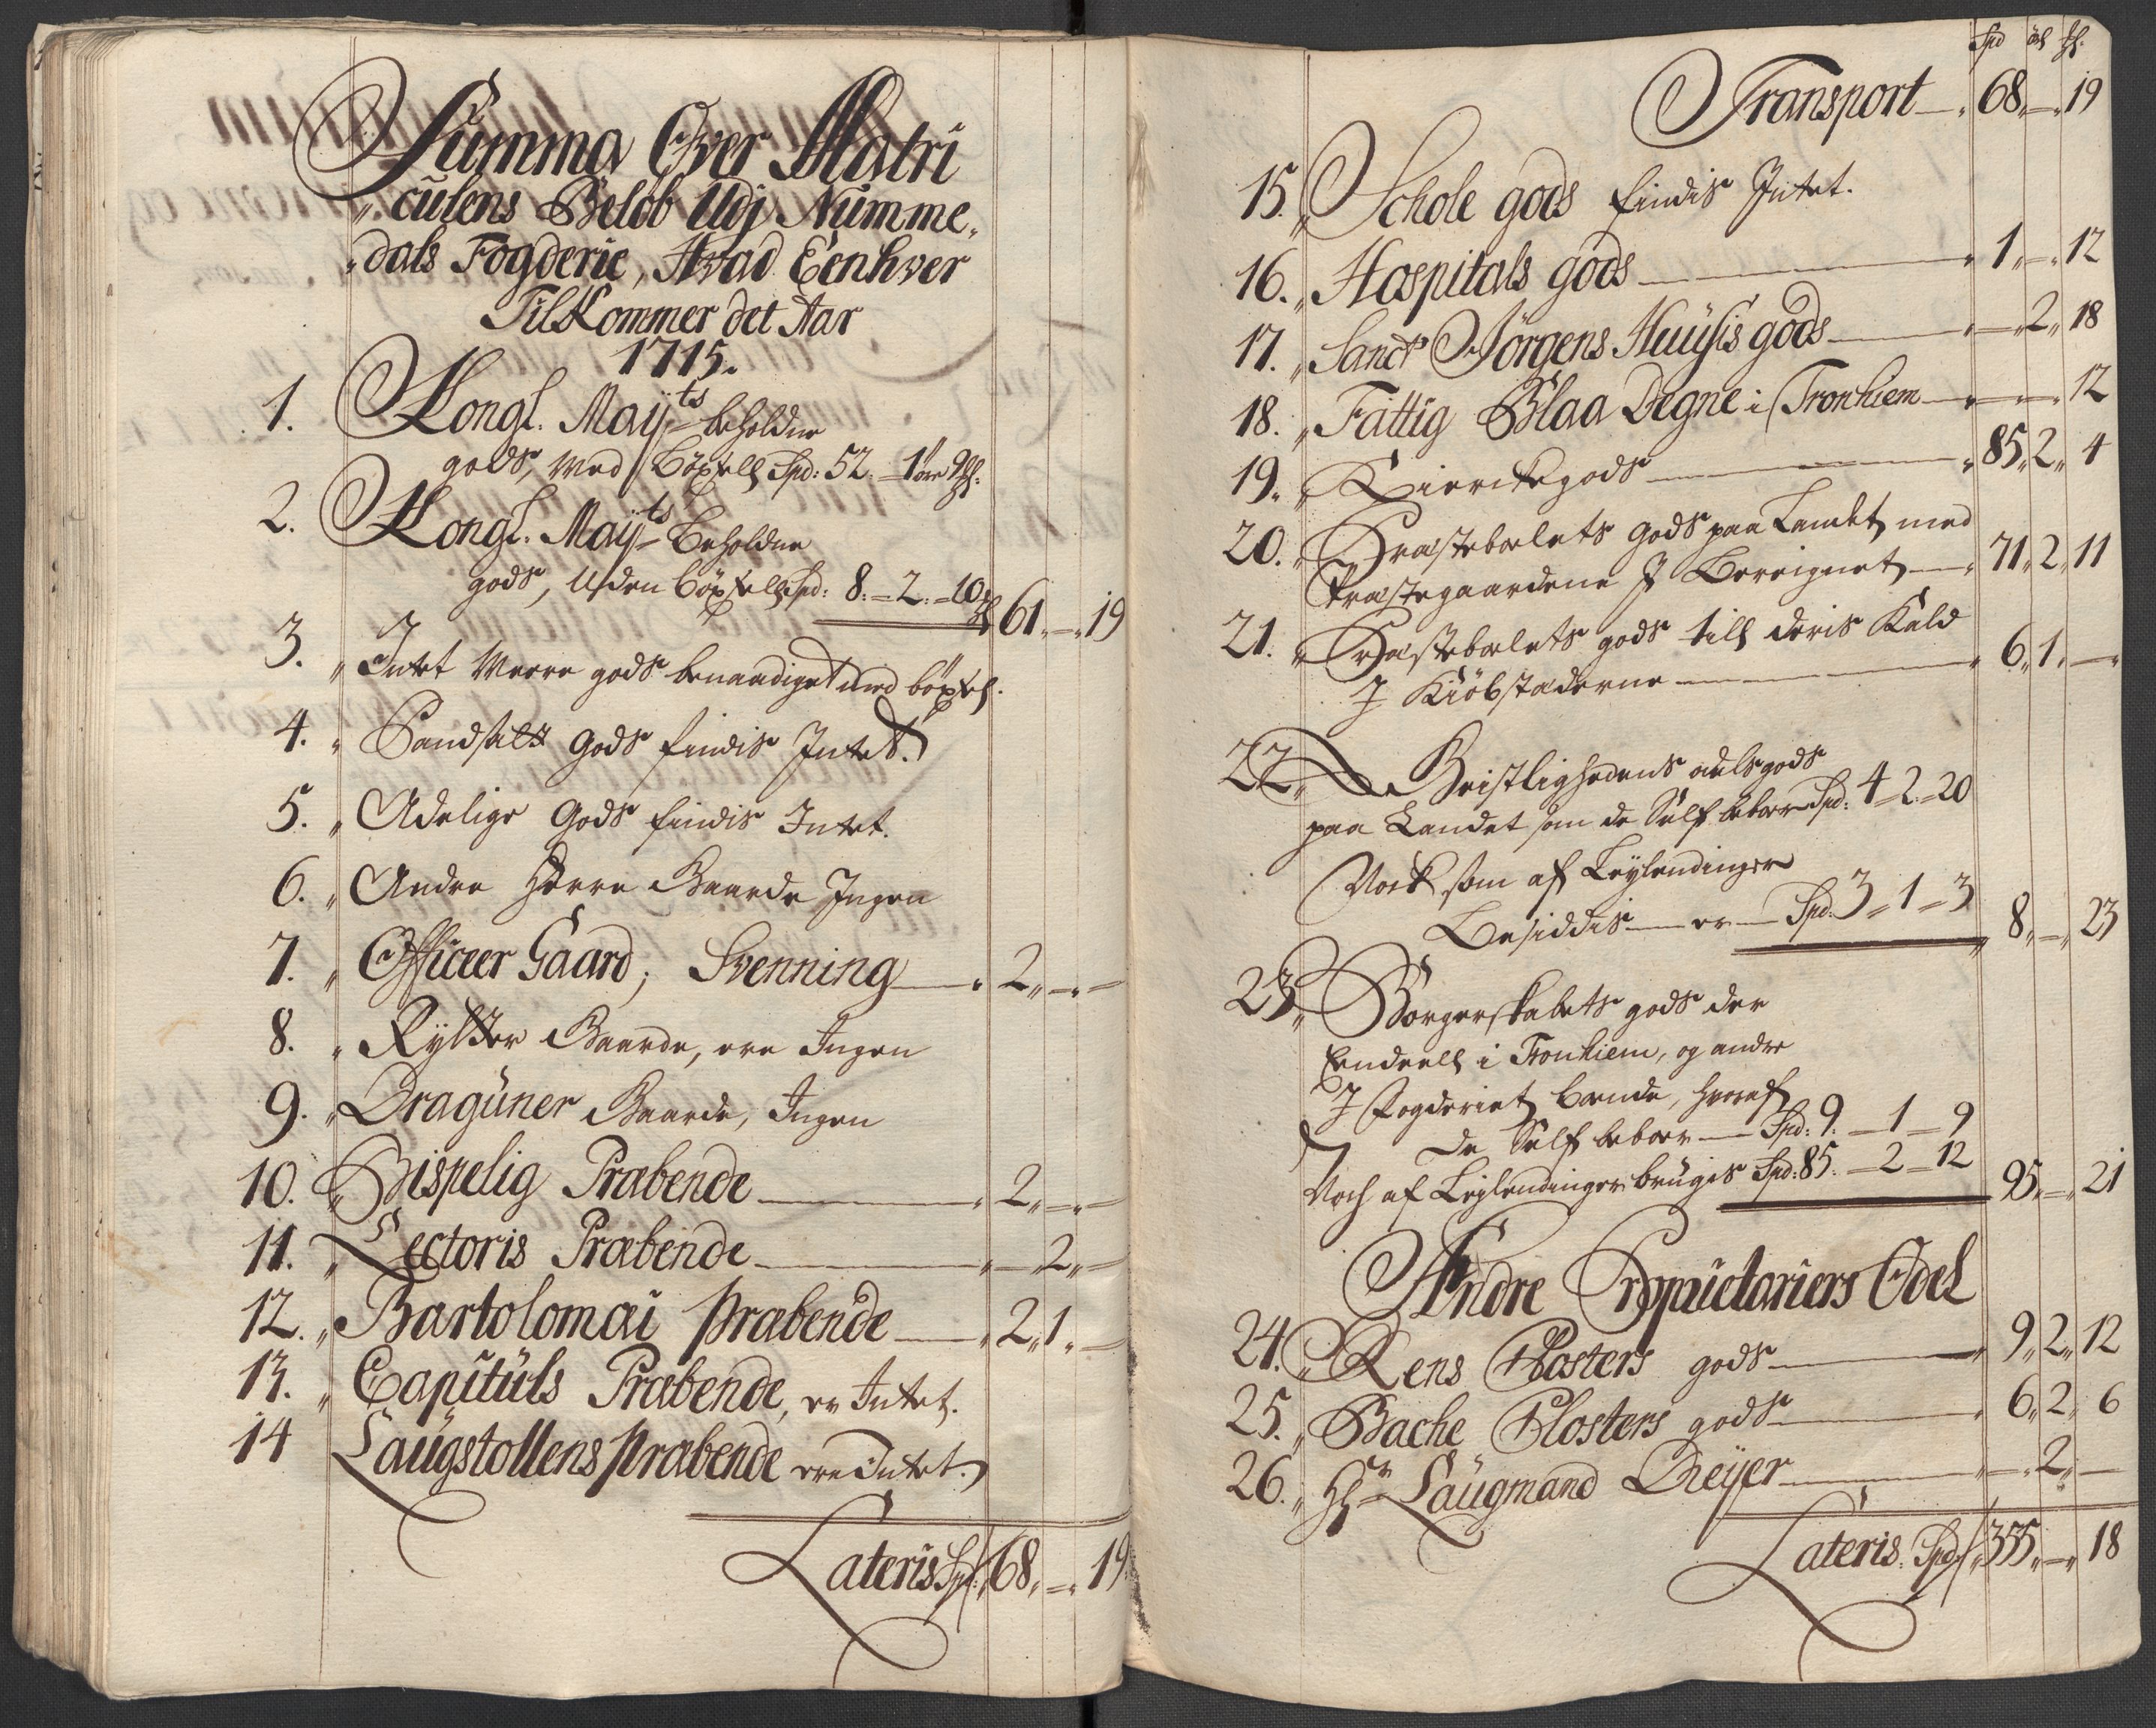 Summa Over Matri
culens Beløb Udj Numme,
dals Fogderie, Hvad Eenhver
TilKommer det Aar
1715.
1. Kongl. Mayts beholdne
gods, med Böxsell Spd: 52 = 1 öre 9 ß.
2. Kongl. Mayts Beholdne
gods, Uden böxsell Spd: 8 = 2 = 10 61 „ — „ 19
3. „ Intet Meere gods benaadiget med böxsel.
4. „ gods findis Intet.
5. „ Adelige Gods findis Intet.
6. „ Andre Herre Gaarde Ingen
7. „ Officeer Gaard, Svenning „ 2 „ — „ —
8. „ Rytter Gaarde, ere Ingen
9. „ Dragüner Gaarde, Ingen
10. „ Bispelig Præbende „ 2 „ — „ —
11. „ Lectoris Præbende „ — „ 2 „ —
12. „ Bartolomæi Præbende „ 2 „ 1 „ —
13. „ Capitüls Præbende, er Intet.
14 Laügstollens Præbende ere Intet.
Lateris Spd: 68 „ — „ 19
Spd öh ß.
Transport „ 68 „ — „ 19
15. „ Schole gods findis Intet.
16. „ Hospitals gods „ 1 „ — „ 12
17. „ Sanct Jörgens Huusis gods „ — „ 2 „ 18
18. „ Fattig Blaa Degne i Tronhiem „ — „ — „ 12
19. „ Kierckegods „ 85 „ 2 „ 4
20. „ Præstebolets gods paa Landet, med
Præstegaardene J Bereignet „ 71 „ 2 „ 11
21. „ Præstebolets gods till deris Kald
J Kiöbstæderne „ 6 „ 1 „ —
22 „ Geistlighedens odelsgods
paa Landet som de Self beboer Spd: 4 = 2 = 20
Nock som af Leylendinger
Besiddis er Spd: 3 = 1 = 3 8 „ — „ 23
23 „ Borgerskabets gods der
Eendeell i Tronhiem, og andre
J Fogderiet boende, hvoraf
De Self beboer Spd: 9 = 1 = 9
Noch af Leylendinger brugis Spd: 85 = 2 = 12 95 „ — „ 21
Andre Proprietariers Odel
24. „ Rens Klosters gods „ 9 „ 2 „ 12
25. „ Bache Klosters gods „ 6 „ 2 „ 6
26. „ Hr Laügmand Dreyer „ — „ 2 „ —
Lateris Spd 355 „ — „ 18